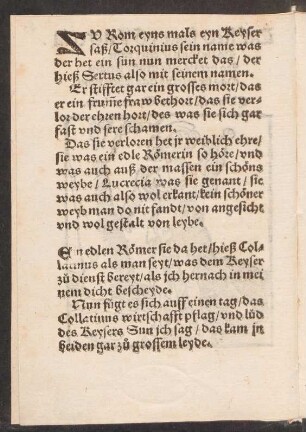 ZV Rom eyns mals eyn Keyser
saß/ Torquinius sein name was
der het ein sun nun mercket das / der
hieß Sertus also mit seinem namen.
Er stifftet gar ein grosses mort/ das
er ein frume fraw bethort/ das sie ver-
lor der ehren hort/ des was sie sich gar
fast vnd sere schamen.
Das sie verloren het jr weiblich ehre/
sie was ein edle Römerin so höre/ vnd
was auch auß der massen ein schöns
weybe / Lucrecia was sie genant/ sie
was auch also wol erkant/ kein schöner
weyb man do nit fandt/ von angesicht
vnd wol gestalt von leybe.
Ein edlen Römer sie da het/ hieß Col-
latinus als man seyt/ was dem Keyser
zů dienst bereyt/ als jch hernach in mei
nem dicht bescheyde.
Nun fügt es sich auff einen tag/ das
Collatinus wirtschafft pflag/ vnd lůd
des Keysers Sun jch sag / das kam jn
beiden gar zů grossem leyde.